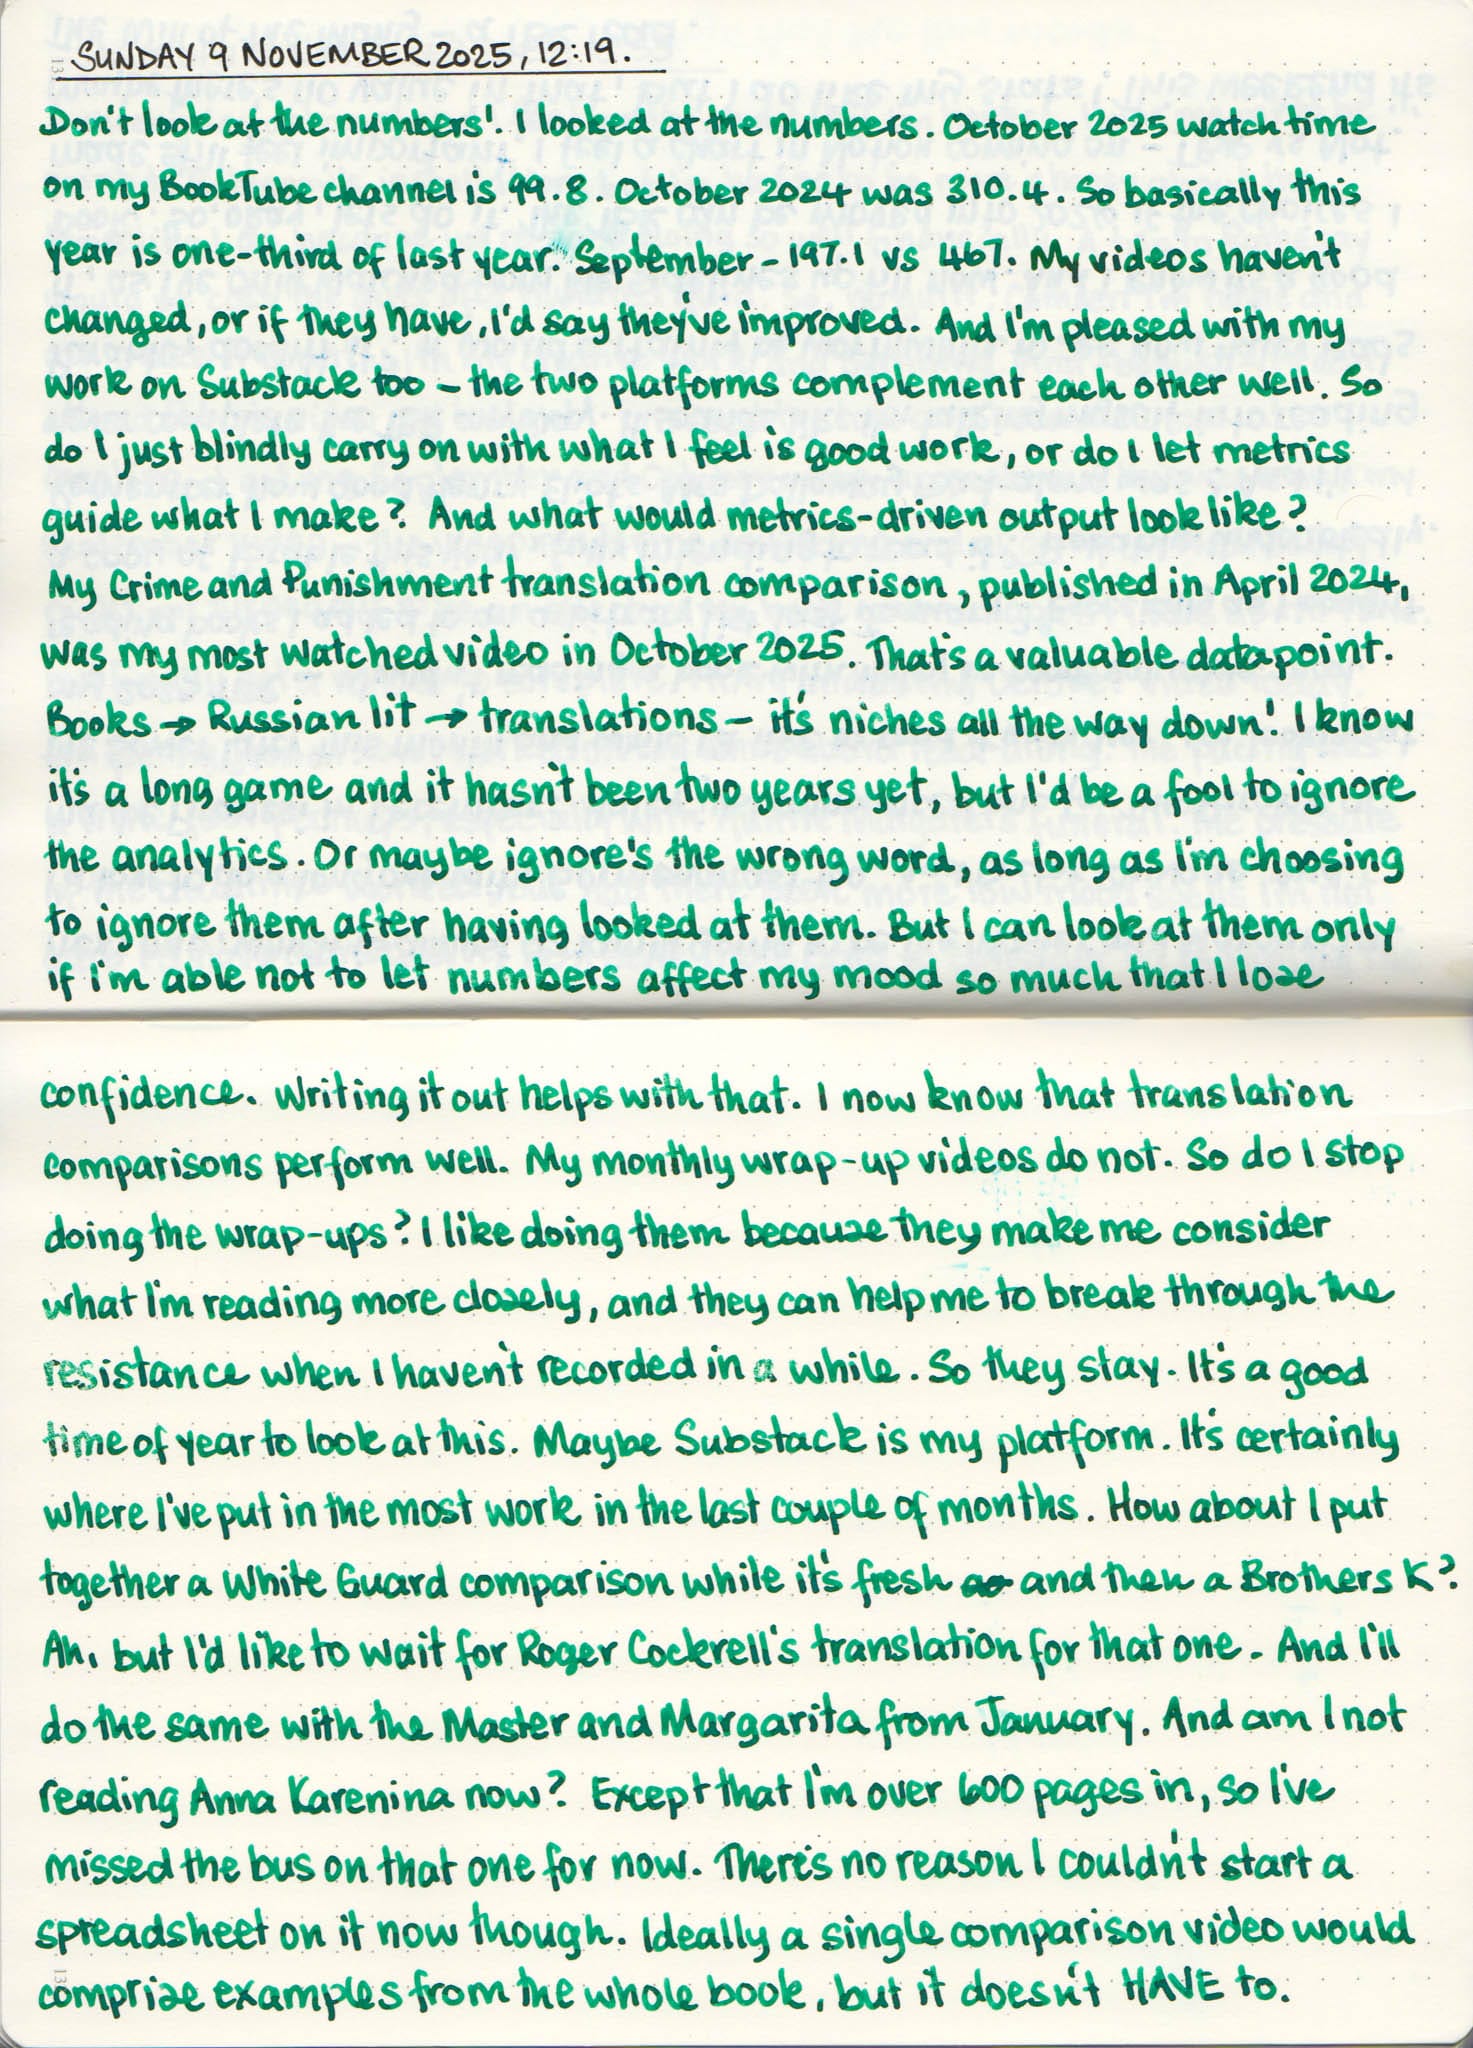 SUNDAY 9 NOVEMBER 2025, 12:19.
Don't look at the numbers'. I looked at the numbers. October 2025 watch time
on my BookTube channel is 99.8. October 2024 was 310.4. So basically this
year is one-third of last year. September - 197.1 vs 467. My videos haven't
changed, or if they have, I'd say they've improved. And I'm pleased with my
work on Substack too - the two platforms complement each other well. So
do I just blindly carry on with what I feel is good work, or do I let metrics
guide what I make? And what would metrics-driven output look like?
My Crime and Punishment translation comparison, published in April 2024,
was my most watched video in October 2025. That's a valuable datapoint.
Books → Russian lit → translations - it's niches all the way down! I know
it's a long game and it hasn't been two years yet, but I'd be a fool to ignore
the analytics. Or maybe ignore's the wrong word, as long as I'm choosing
to ignore them after having looked at them. But I can look at them only
if I'm able not to let numbers affect my mood so much that I lose
confidence. Writing it out helps with that. I now know that translation
comparisons perform well. My monthly wrap-up videos do not. So do I stop
doing the wrap-ups? I like doing them because they make me consider
what I'm reading more closely, and they can help me to break through the
resistance when I haven't recorded in a while. So they stay. It's a good
time of year to look at this. Maybe Substack is my platform. It's certainly
where I've put in the most work in the last couple of months. How about I put
together a White Guard comparison while it's fresh and then a Brothers K?
Ah, but I'd like to wait for Roger Cockrell's translation for that one. And I'll
do the same with the Master and Margarita from January. And am I not
reading Anna Karenina now? Except that I'm over 600 pages in, so I've
missed the bus on that one for now. There's no reason I couldn't start a
spreadsheet on it now though. Ideally a single comparison video would
comprise examples from the whole book, but it doesn't HAVE to.